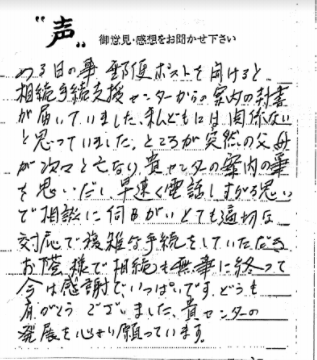 "声" 御意見・感想をお聞かせ下さい
ある日の事 郵便ポストを開けると
相続手続支援センターからの案内の封書
が届いていました、私どもには関係ない
と思っていました。ところが突然の父母
が次々と亡なり、貴センターの案内の事
を思いだし早速く電話しすがる思い
で相談に伺いがいとても適切な
対応で複雑な手続をしていただき
お蔭様で相続も無事に終って
今は感謝でいっぱいです。どうも
有がとうございました、貴センターの
発展を心より願っています。